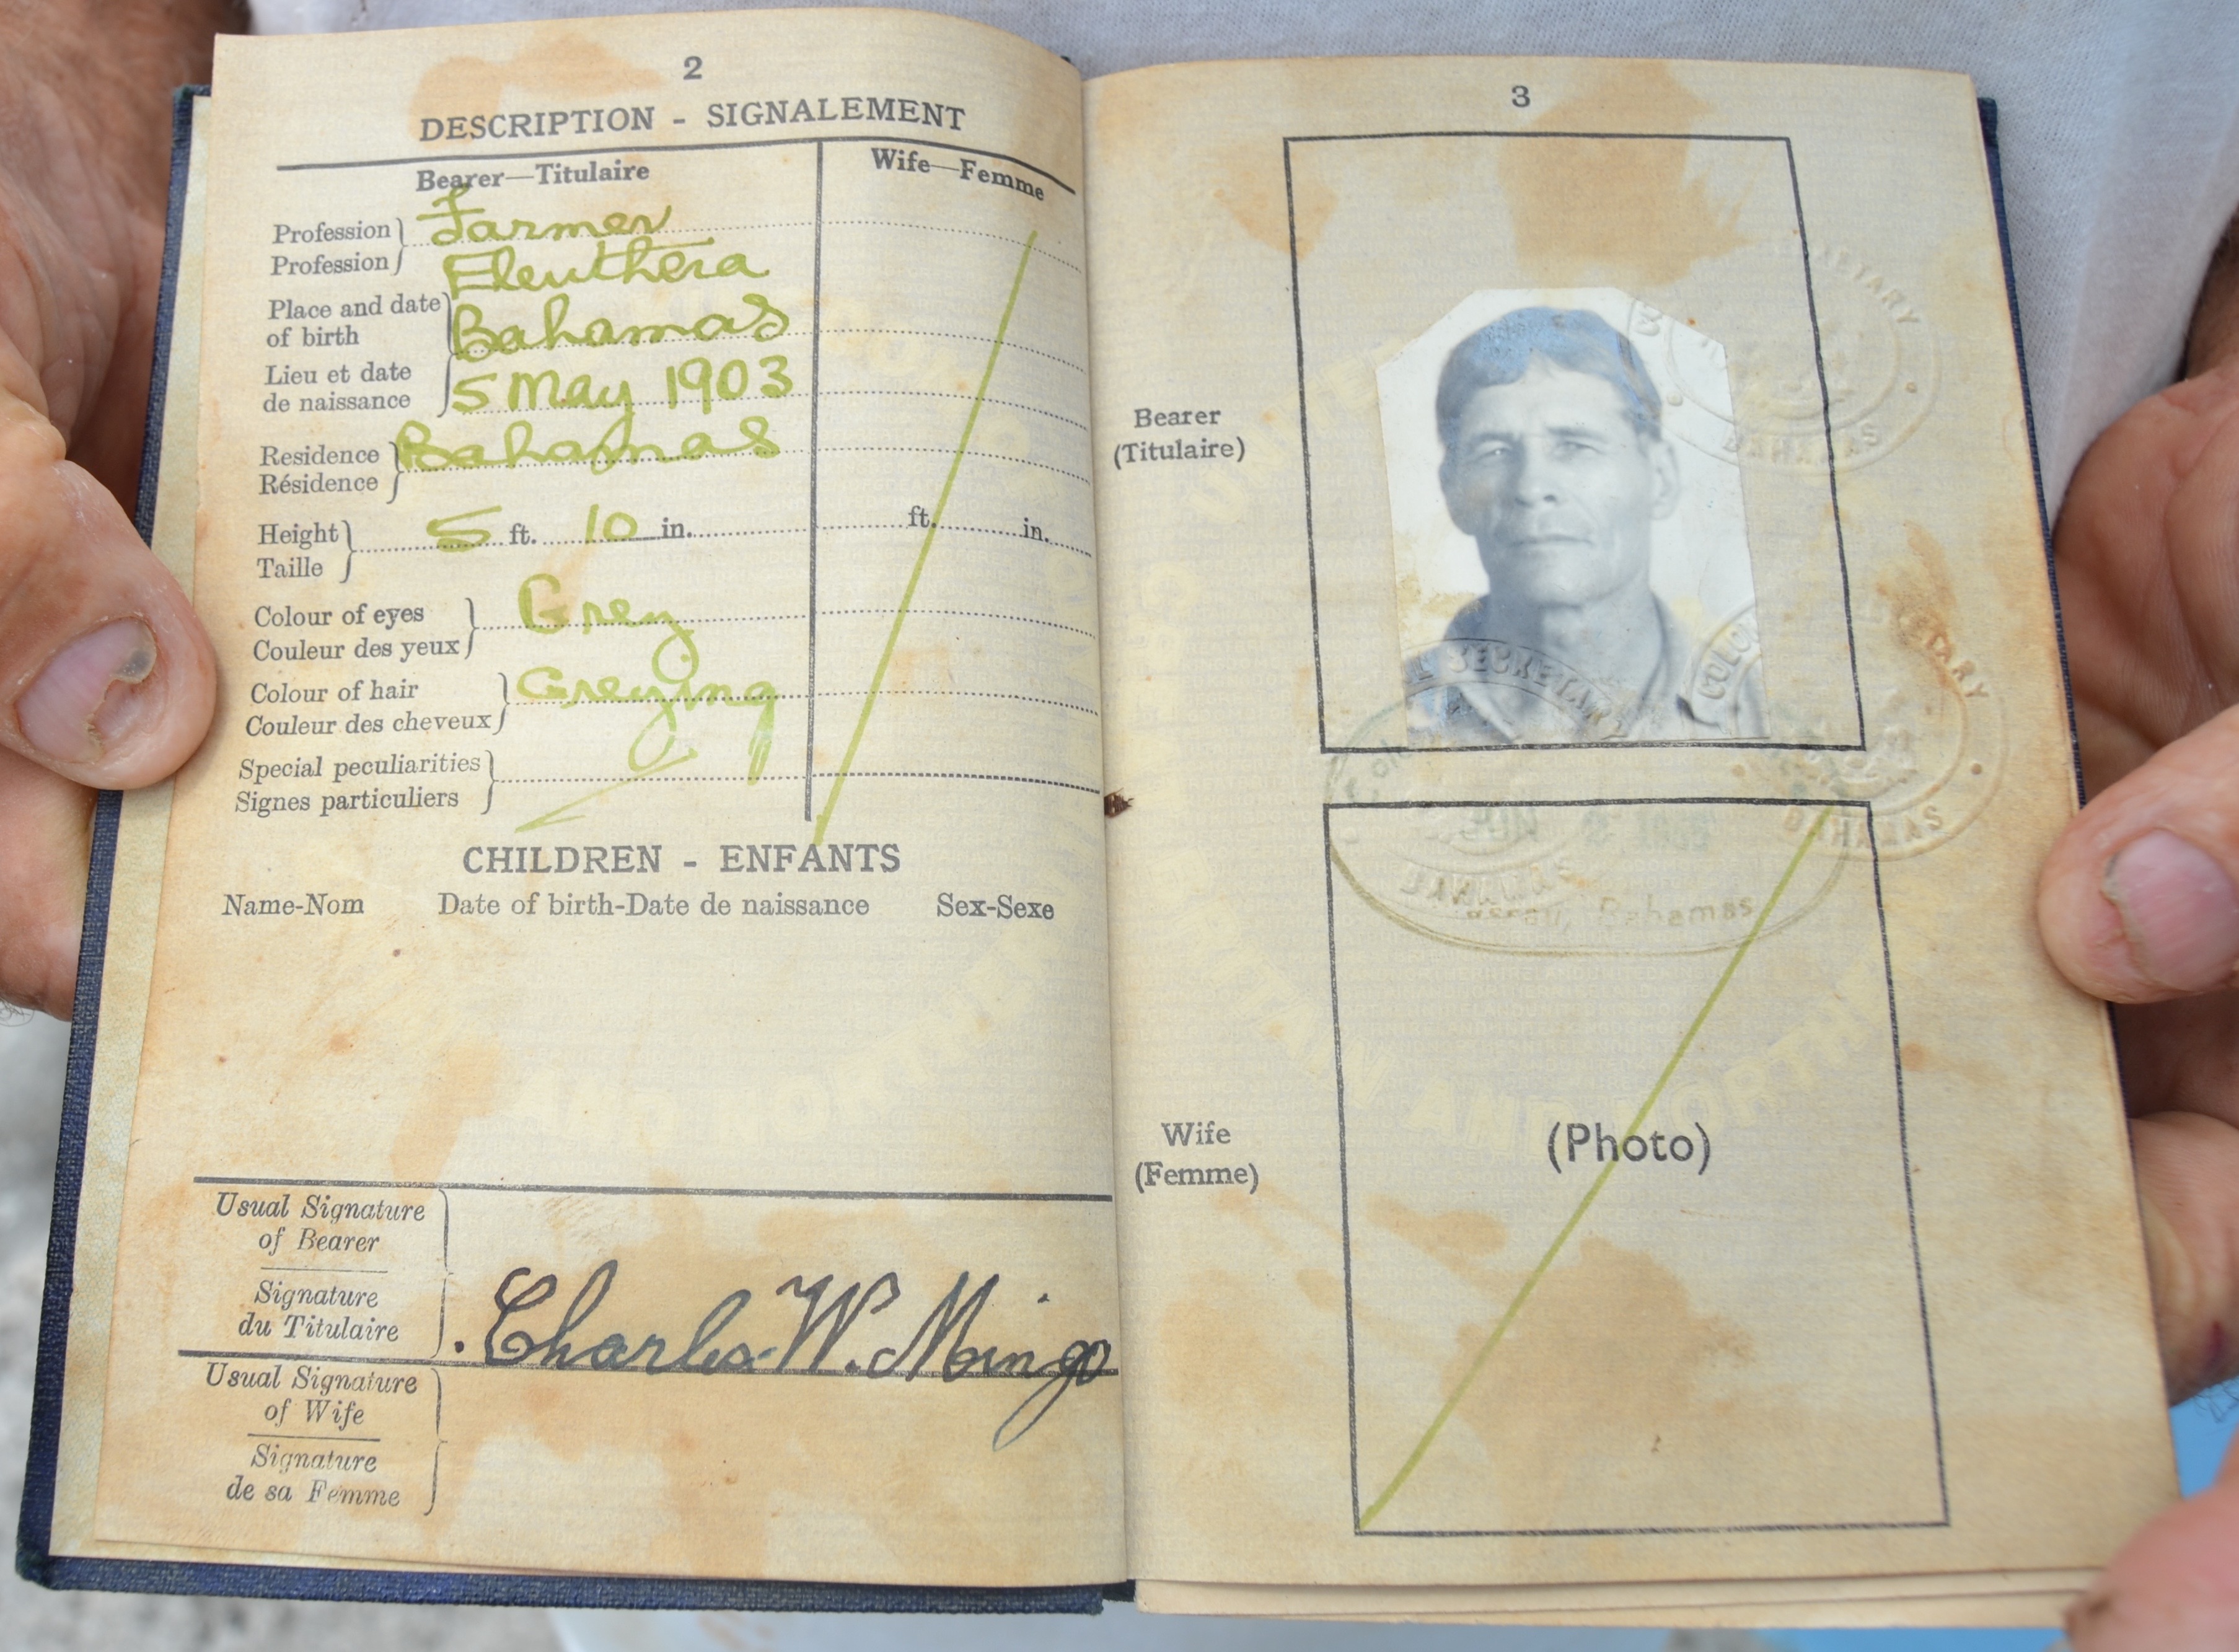 2
DESCRIPTION - SIGNALEMENT
Bearer—Titulaire
Wife—Femme
Profession
Profession
Farmer
Place and date
of birth
Lieu et date
de naissance
Eleuthera
Bahamas
5 May 1903
Residence
Résidence
Bahamas
Height
Taille
5 ft. 10 in.
ft. in.
Colour of eyes
Couleur des yeux
Grey
Colour of hair
Couleur des cheveux
Greying
Special peculiarities
Signes particuliers
CHILDREN - ENFANTS
Name-Nom Date of birth-Date de naissance Sex-Sexe
Usual Signature
of Bearer
Signature
du Titulaire
Charles W. Mingo
Usual Signature
of Wife
Signature
de sa Femme
3
Bearer
(Titulaire)
SECRETARY
BAHAMAS
BAHAMAS
BAHAMAS
Bahamas
Wife
(Femme)
(Photo)
AND NORTHE